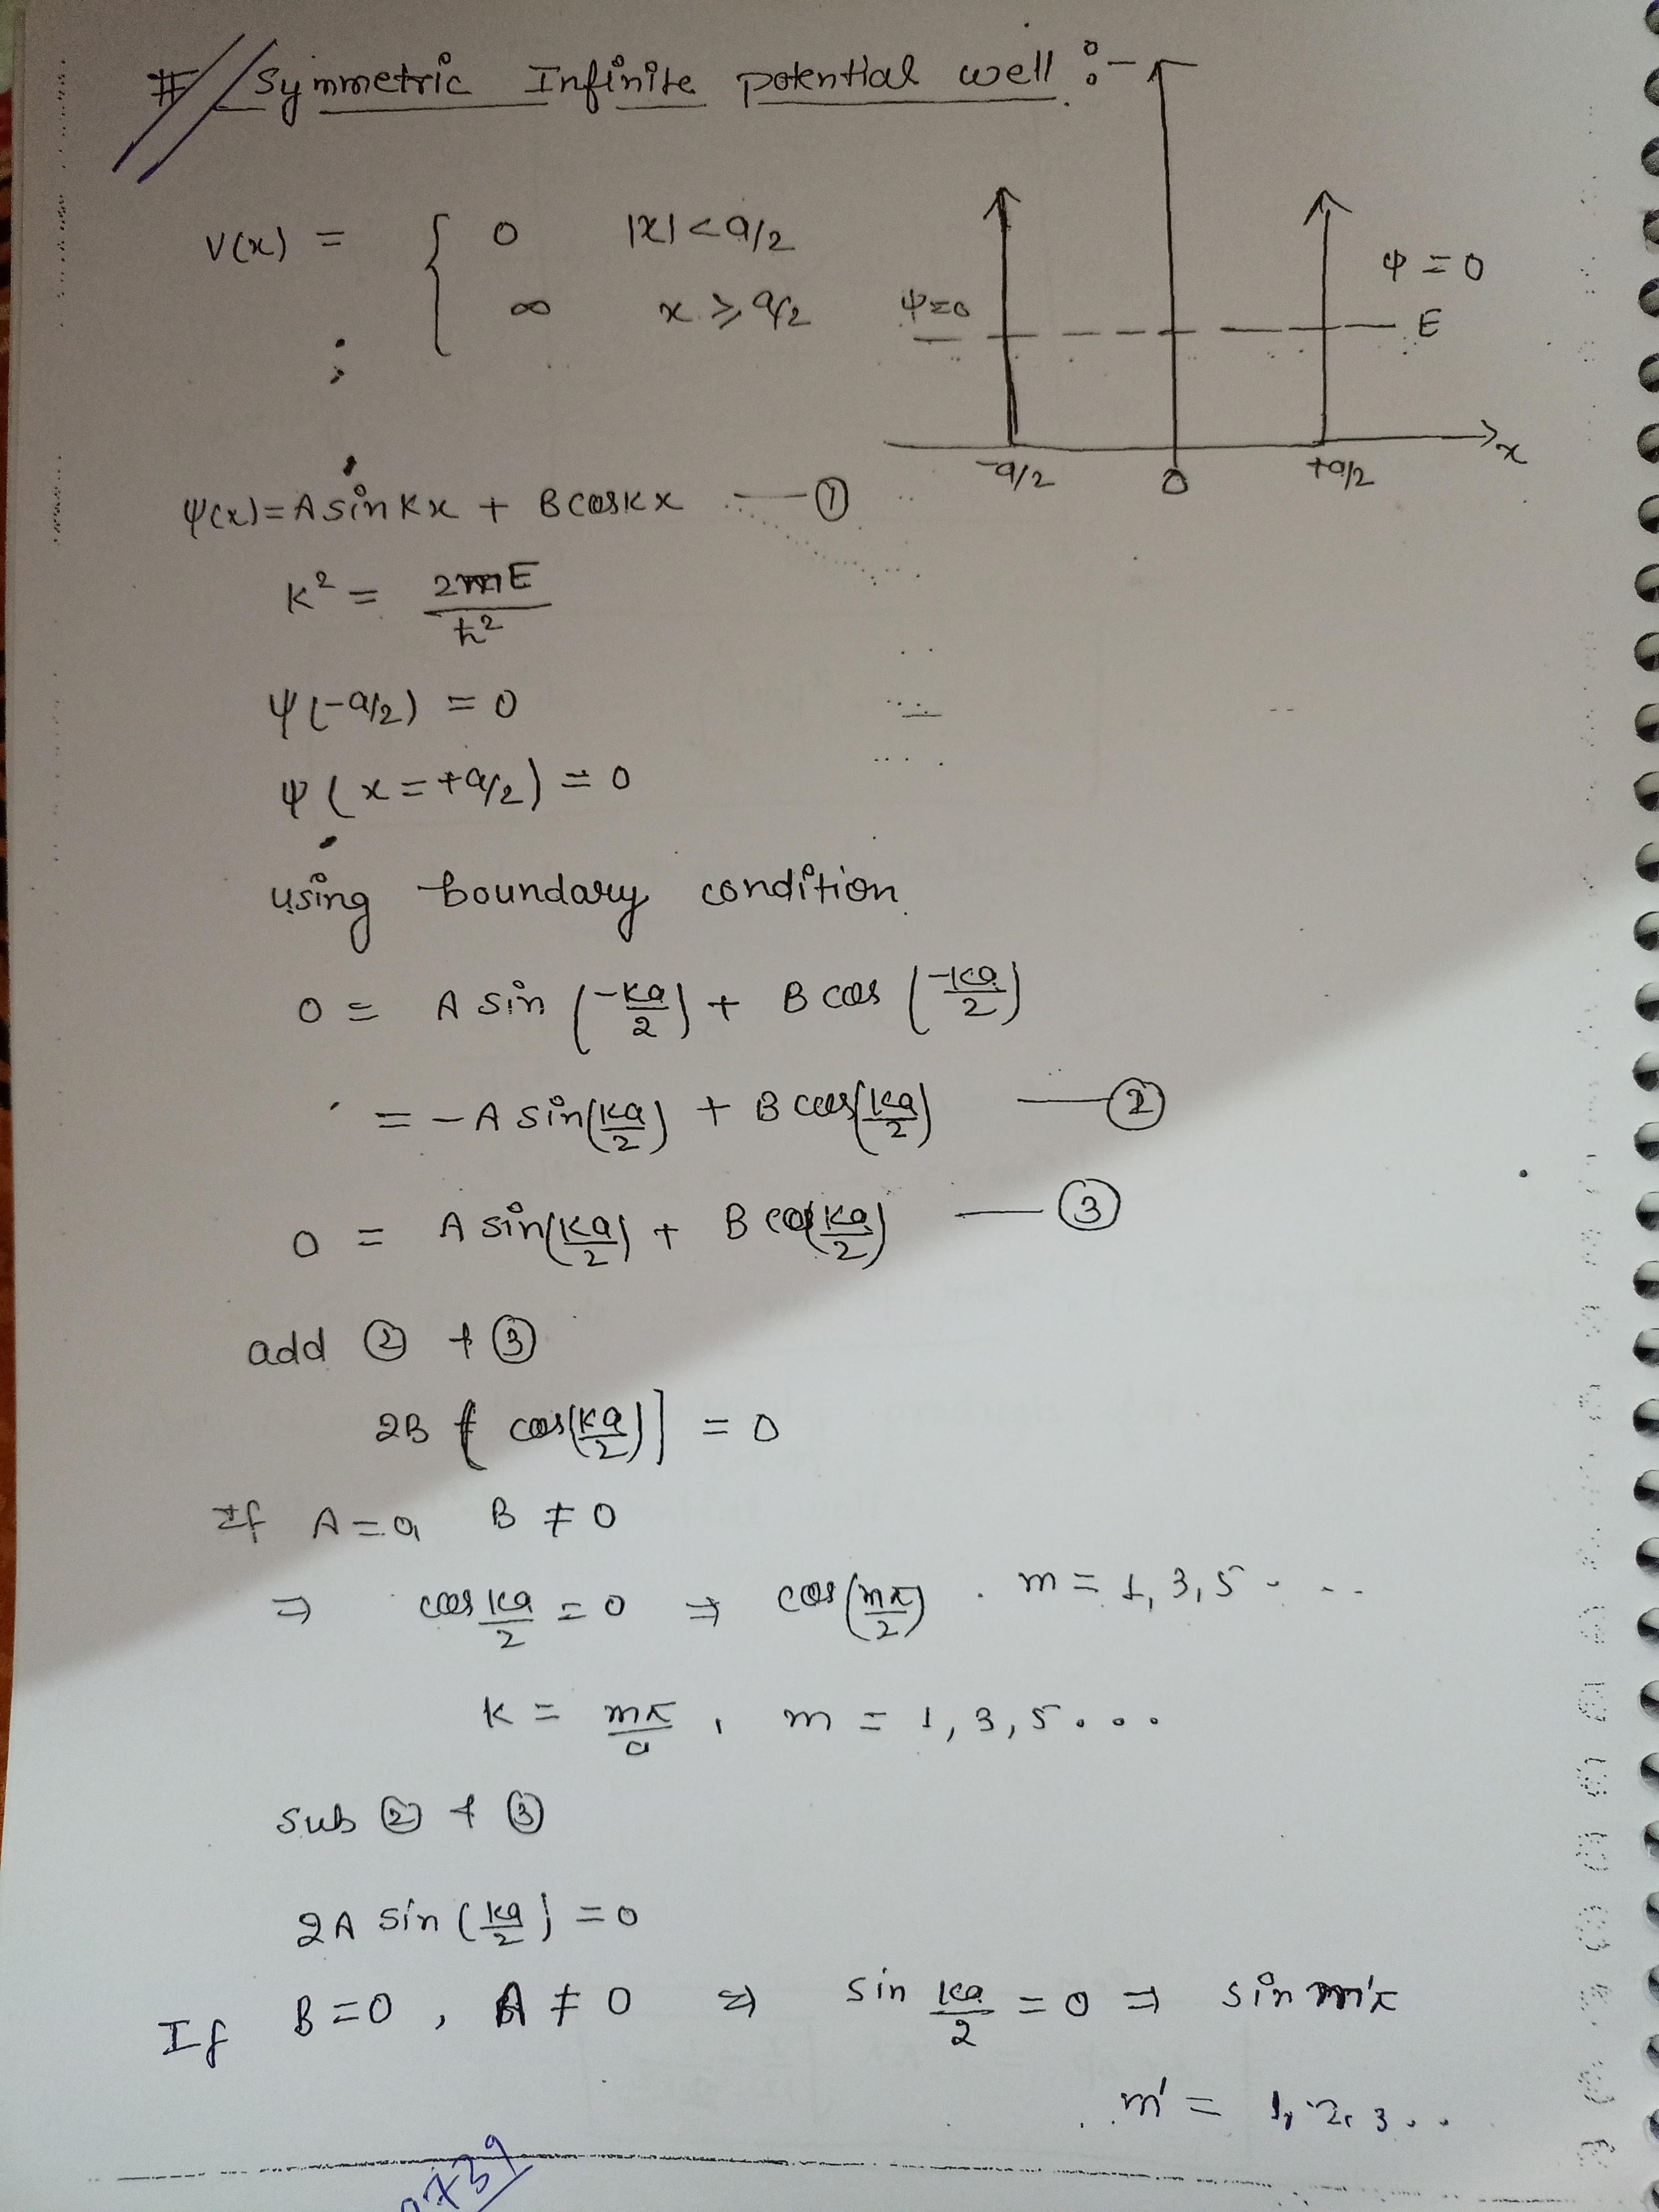 # Symmetric Infinite potential well :-
V(x) = { 0 |x| < a/2
∞ x ≥ a/2
ψ=0
ψ = 0
E
-a/2 0 +a/2 x
ψ(x) = A sin kx + B cos kx — ①
k² = 2mE/ħ²
ψ(-a/2) = 0
ψ(x = +a/2) = 0
using boundary condition
0 = A sin (-ka/2) + B cos (-ka/2)
= - A sin(ka/2) + B cos(ka/2) — ②
0 = A sin(ka/2) + B cos(ka/2) — ③
add ② + ③
2B [cos(ka/2)] = 0
If A = 0, B ≠ 0
⇒ cos ka/2 = 0 ⇒ cos(mπ/2) . m = 1, 3, 5 - - -
k = mπ/a , m = 1, 3, 5 . . .
sub ② & ③
2A sin (ka/2) = 0
If B = 0, A ≠ 0 ⇒ sin ka/2 = 0 ⇒ sin m'π
m' = 1, 2, 3 . .